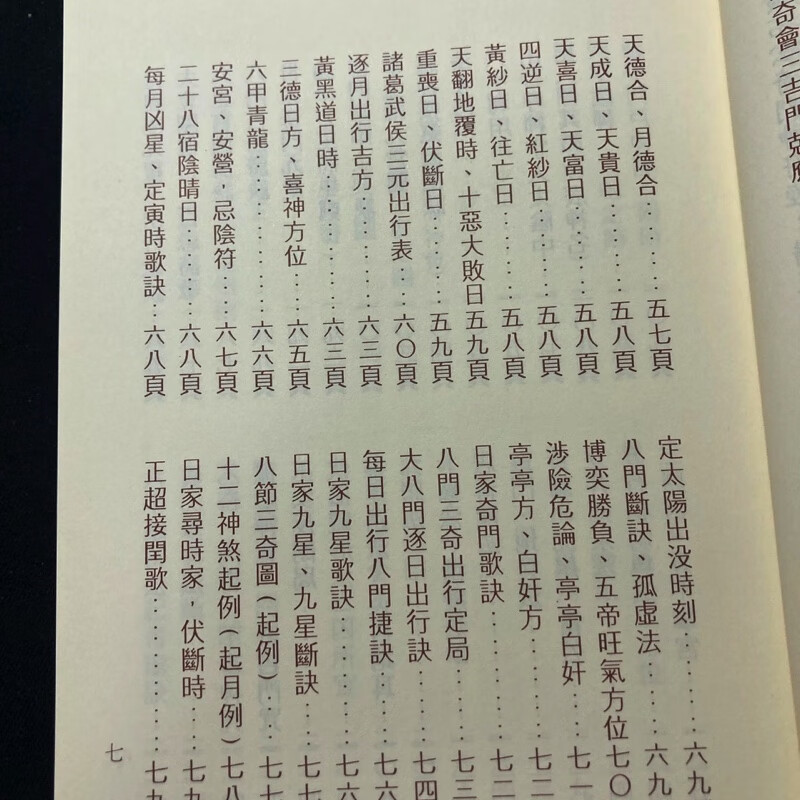 奇會三吉門剋
天德合、月德合......五七頁
天成日、天貴日......五八頁
天喜日、天富日......五八頁
四逆日、紅紗日......五八頁
黃紗日、往亡日......五八頁
天翻地覆時、十惡大敗日五九頁
重喪日、伏斷日......五九頁
諸葛武侯三元出行表...六〇頁
逐月出行吉方......六三頁
黃黑道日時......六三頁
三德日方、喜神方位...六五頁
六甲青龍......六六頁
安宮、安營，忌陰符...六七頁
二十八宿陰晴日......六八頁
每月凶星、定寅時歌訣...六八頁
定太陽出没時刻......六九
八門斷訣、孤虛法......六九
博奕勝負、五帝旺氣方位七〇
涉險危論、亭亭白奸...七一
亭亭方、白奸方......七二
日家奇門歌訣......七二
八門三奇出行定局...七三
大八門逐日出行訣...七四
每日出行八門捷訣...七六
日家九星歌訣......七六
日家九星、九星斷訣...七七
八節三奇圖（起例）...七七
十二神煞起例（起月例）七八
日家尋時家，伏斷時...七九
正超接閏歌......七九
七